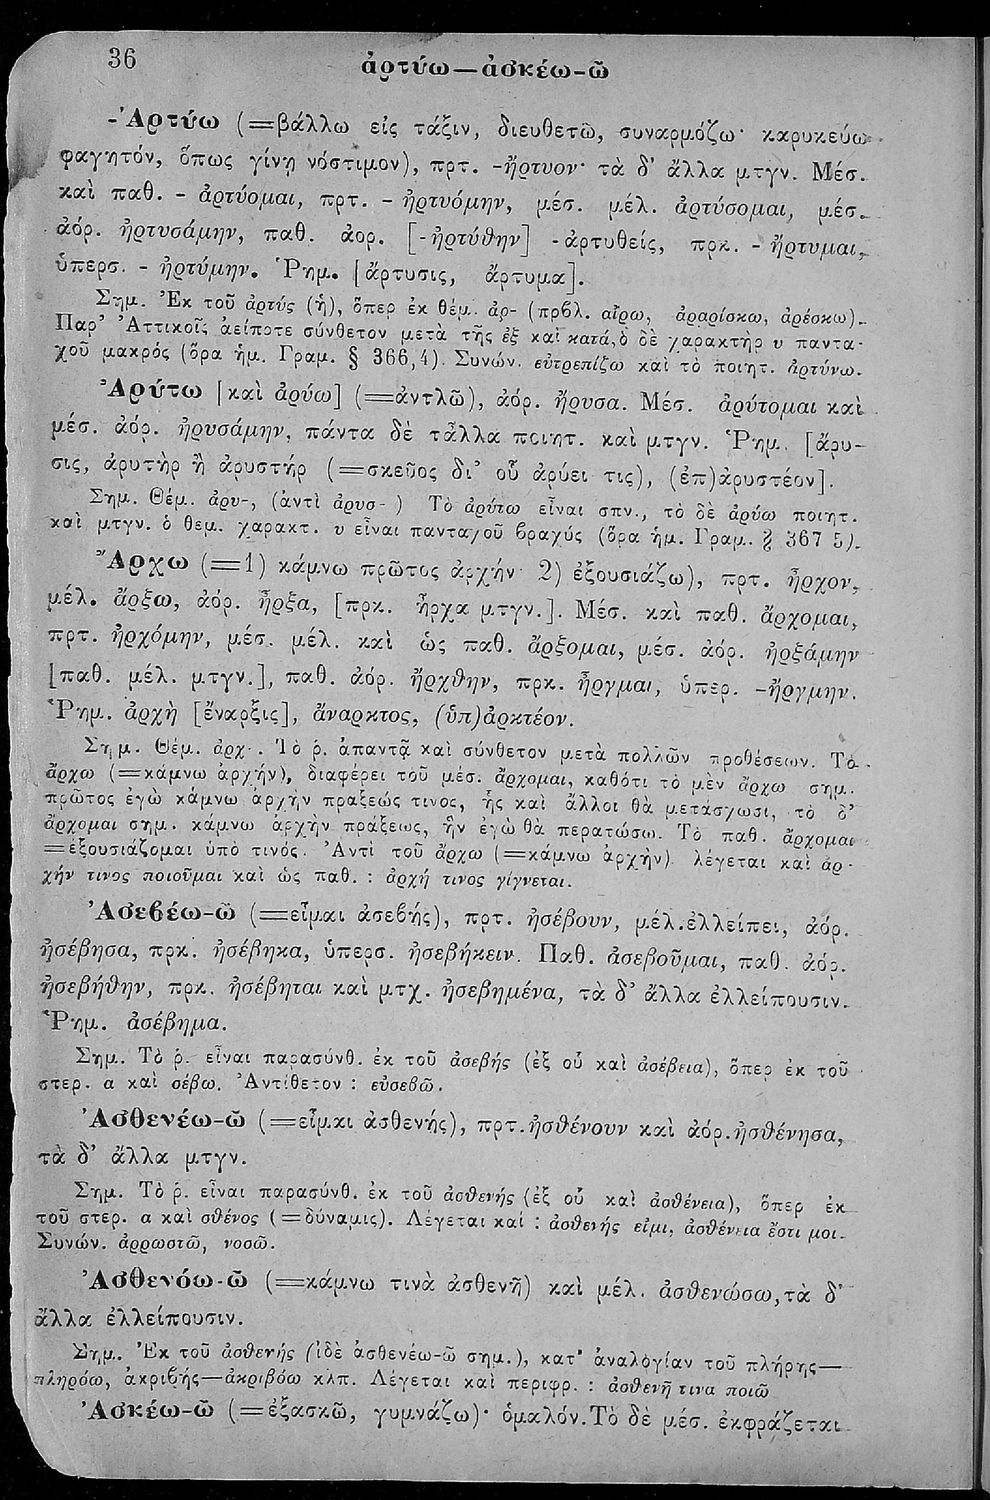 36
ἀρτύω—ἀσκέω-ῶ
-Ἀρτύω (=βάλλω εἰς τάξιν, διευθετῶ, συναρμόζω· καρυκεύω
φαγητόν, ὅπως γίνῃ νόστιμον), πρτ. -ἤρτυον· τὰ δ' ἄλλα μτγν. Μέσ.
καὶ παθ. - ἀρτύομαι, πρτ. - ἠρτυόμην, μέσ. μέλ. ἀρτύσομαι, μέσ.
ἀόρ. ἠρτυσάμην, παθ. ἀορ. [-ἠρτύθην] -ἀρτυθείς, πρκ. - ἤρτυμαι,
ὑπερσ. - ἠρτύμην. Ῥημ. [ἄρτυσις, ἄρτυμα].
Σημ. Ἐκ τοῦ ἀρτύς (ἡ), ὅπερ ἐκ θέμ. ἀρ- (πρβλ. αἴρω, ἀραρίσκω, ἀρέσκω).
Παρ' Ἀττικοῖς ἀείποτε σύνθετον μετὰ τῆς ἐξ καὶ κατά, ὁ δὲ χαρακτὴρ υ παντα-
χοῦ μακρός (ὅρα ἡμ. Γραμ. § 366,4). Συνών. εὐτρεπίζω καὶ τὸ ποιητ. ἀρτύνω.
Ἀρύτω [καὶ ἀρύω] (=ἀντλῶ), ἀόρ. ἤρυσα. Μέσ. ἀρύτομαι καὶ
μέσ. ἀόρ. ἠρυσάμην, πάντα δὲ τἆλλα ποιητ. καὶ μτγν. Ῥημ. [ἄρυ-
σις, ἀρυτὴρ ἢ ἀρυστήρ (=σκεῦος δι' οὗ ἀρύει τις), (ἐπ)αρυστέον].
Σημ. Θέμ. ἀρυ-, (ἀντὶ ἀρυσ- ) Τὸ ἀρύτω εἶναι σπν., τὸ δὲ ἀρύω ποιητ.
καὶ μτγν. ὁ θεμ. χαρακτ. υ εἶναι πανταχοῦ βραχύς (ὅρα ἡμ. Γραμ. § 367 5).
Ἄρχω (=1) κάμνω πρῶτος ἀρχήν 2) ἐξουσιάζω), πρτ. ἦρχον,
μέλ. ἄρξω, ἀόρ. ἦρξα, [πρκ. ἦρχα μτγν.]. Μέσ. καὶ παθ. ἄρχομαι,
πρτ. ἠρχόμην, μέσ. μέλ. καὶ ὡς παθ. ἄρξομαι, μέσ. ἀόρ. ἠρξάμην
[παθ. μέλ. μτγν.], παθ. ἀόρ. ἤρχθην, πρκ. ἦργμαι, ὑπερ. -ἤργμην.
Ῥημ. ἀρχὴ [ἔναρξις], ἄναρκτος, (ὑπ)ἀρκτέον.
Σημ. Θέμ. ἀρχ-. Τὸ ῥ. ἀπαντᾷ καὶ σύνθετον μετὰ πολλῶν προθέσεων. Τὸ
ἄρχω (=κάμνω ἀρχήν), διαφέρει τοῦ μέσ. ἄρχομαι, καθότι τὸ μὲν ἄρχω σημ.
πρῶτος ἐγὼ κάμνω ἀρχὴν πράξεώς τινος, ἧς καὶ ἄλλοι θὰ μετάσχωσι, τὸ δ'
ἄρχομαι σημ. κάμνω ἀρχὴν πράξεως, ἣν ἐγὼ θὰ περατώσω. Τὸ παθ. ἄρχομαι
=ἐξουσιάζομαι ὑπὸ τινός. Ἀντὶ τοῦ ἄρχω (=κάμνω ἀρχὴν) λέγεται καὶ ἀρ-
χήν τινος ποιοῦμαι καὶ ὡς παθ. : ἀρχή τινος γίγνεται.
Ἀσεβέω-ῶ (=εἶμαι ἀσεβής), πρτ. ἠσέβουν, μέλ. ἐλλείπει, ἀόρ.
ἠσέβησα, πρκ. ἠσέβηκα, ὑπερσ. ἠσεβήκειν. Παθ. ἀσεβοῦμαι, παθ. ἀόρ.
ἠσεβήθην, πρκ. ἠσέβηται καὶ μτχ. ἠσεβημένα, τὰ δ' ἄλλα ἐλλείπουσιν.
Ῥημ. ἀσέβημα.
Σημ. Τὸ ῥ. εἶναι παρασύνθ. ἐκ τοῦ ἀσεβής (ἐξ οὗ καὶ ἀσέβεια), ὅπερ ἐκ τοῦ
στερ. α καὶ σέβω. Ἀντίθετον : εὐσεβῶ.
Ἀσθενέω-ῶ (=εἶμαι ἀσθενής), πρτ. ἠσθένουν καὶ ἀόρ. ἠσθένησα,
τὰ δ' ἄλλα μτγν.
Σημ. Τὸ ῥ. εἶναι παρασύνθ. ἐκ τοῦ ἀσθενής (ἐξ οὗ καὶ ἀσθένεια), ὅπερ ἐκ
τοῦ στερ. α καὶ σθένος (=δύναμις). Λέγεται καί : ἀσθενής εἰμι, ἀσθένεια ἔστι μοι.
Συνών. ἀρρωστῶ, νοσῶ.
Ἀσθενόω-ῶ (=κάμνω τινὰ ἀσθενῆ) καὶ μέλ. ἀσθενώσω, τὰ δ'
ἄλλα ἐλλείπουσιν.
Σημ. Ἐκ τοῦ ἀσθενής (ἰδὲ ἀσθενέω-ῶ σημ.), κατ' ἀναλογίαν τοῦ πλήρης—
πληρόω, ἀκριβής—ἀκριβόω κλπ. Λέγεται καὶ περιφρ. : ἀσθενῆ τινα ποιῶ
Ἀσκέω-ῶ (=ἐξασκῶ, γυμνάζω)· ὁμαλόν. Τὸ δὲ μέσ. ἐκφράζεται